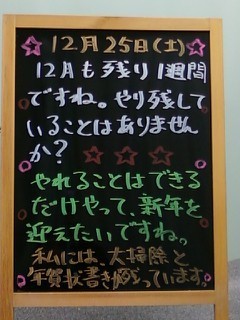 12月25日(土)
12月も残り1週間
ですね。やり残して
いることはありません
か?
やれることはできる
だけやって、新年を
迎えたいですね。
私には、大掃除と
年賀状書きが残っています。